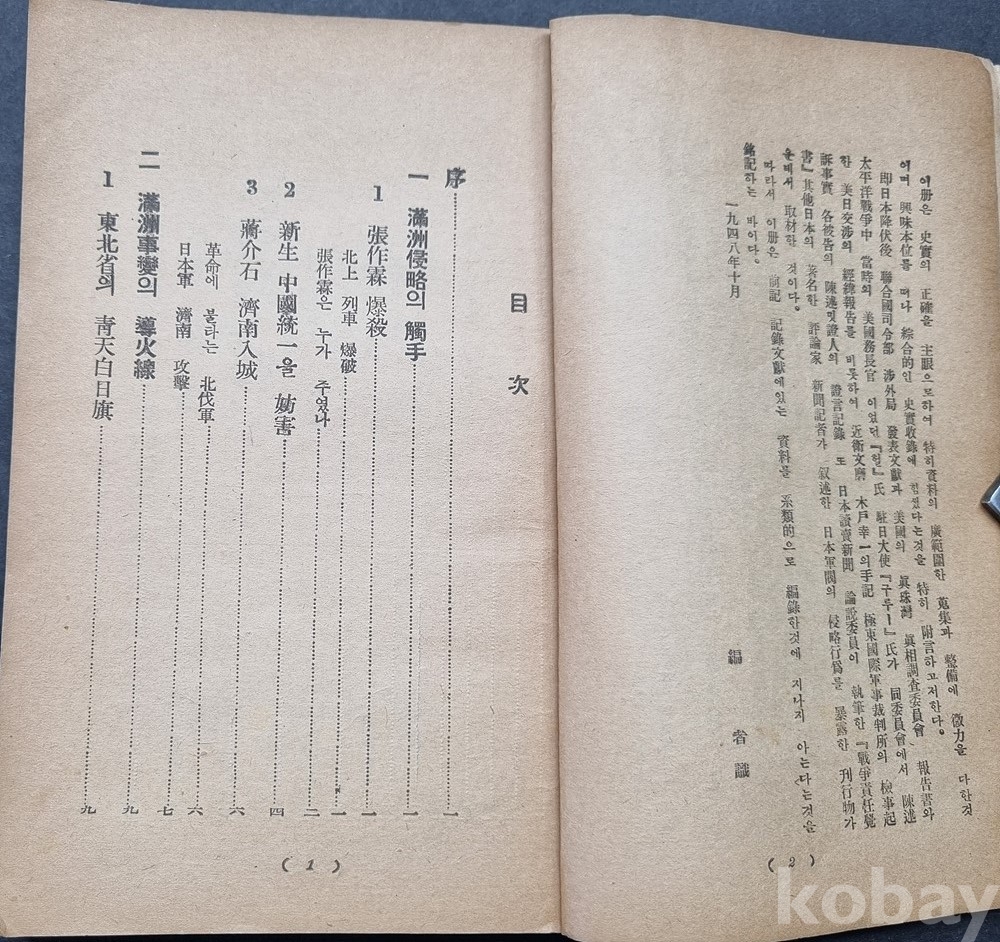 이册은 史實의 正確을 主眼으로하여 特히資料의 廣範圍한 蒐集과 整備에 微力을 다한것
이며 興味本位를 떠나 綜合的인 史實收錄에 힘썼다는것을 特히 附言하고저한다。
即日本降伏後 聯合國司令部 涉外局 發表文献과 美國의 眞珠灣 眞相調査委員會 報告書와
太平洋戰爭中 當時의 美國務長官 이었던『헐』氏 駐日大使『구루ー』氏가 同委員會에서 陳述
한 美日交涉의 經緯報告를 비롯하여 近衛文麿 木戶幸一의手記 極東國際軍事裁判所의 檢事起
訴事實 各被告의 陳述및證人의 證言記錄 또 日本讀賣新聞 論說委員이 執筆한『戰爭責任覺
書』其他日本의 著名한 評論家 新聞記者가 叙述한 日本軍閥의 侵略行爲를 暴露한 刊行物가
운데서 取材한 것이다。
따라서 이册은 前記 記錄文献에있는 資料를 系類的으로 編錄한것에 지나지 아는다는것을
銘記하는 바이다。
一九四八年十月
編者識
( 2 )
目次
序 一
一 滿洲侵略의 觸手 一
1 張作霖 爆殺 一
北上 列車 爆破 一
張作霖은 누가 주엿나 二
2 新生 中國統一을 妨害 四
3 蔣介石 濟南入城 六
革命에 불타는 北伐軍 六
日本軍 濟南 攻擊 七
二 滿洲事變의 導火線 九
1 東北省의 靑天白日旗 九
( 1 )
kobay